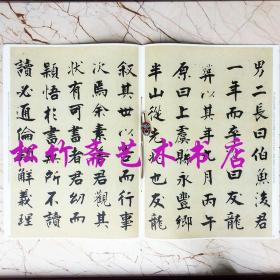 男二長曰伯魚後君
一年而卒曰友龍
葬以其年月丙午
原曰上虞縣永豐鄉
半山從先也友龍
叙其世以而行事
次焉余素善君觀
狀有可書者君幼而
穎悟於書無所不讀
讀必通倫解義理
松竹斋艺术书店